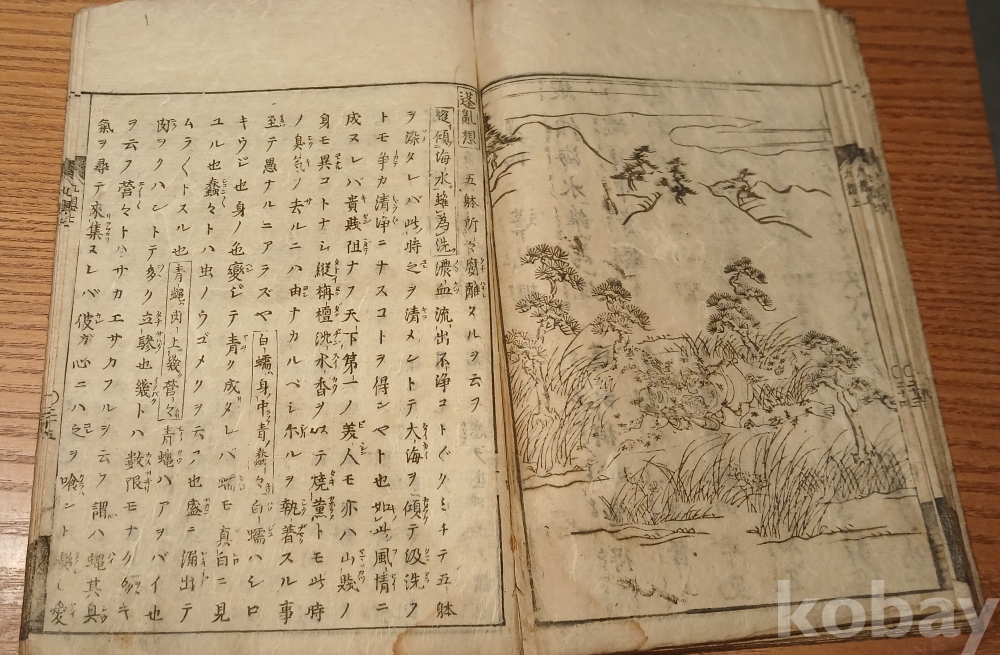 蓬亂想 五躰所々廢離タルヲ云フ
縱傾海水雖為洗濃血流出不浄コトゴクミチテ五躰
ヲ染タレバ此時之ヲ清メントテ大海ヲ傾テ汲洗フ
トモ爭カ清浄ニナスコトヲ得ンヤト也如此風情ニ
成ヌレバ貴賤阻ナク天下第一ノ美人モ亦ハ山賤ノ
身モ異コトナシ縱栴檀沈水香ヲ以テ燒薫トモ此時
ノ臭気ノ去ルニハ由ナカルベシ尓ルヲ執着スル事
至テ愚ナルニアラズヤ 白蠕身中青蠢々白蠕ハシロ
キウジ也身ノ色變ジテ青ク成タレバ蠕モ真白ニ見
ユル也蠢々トハ虫ノウゴメクヲ云フ也盛ニ涌出テ
ムラ〱トスル也 青蠅肉上幾營々青蠅ハアヲバイ也
肉ヲクハントテ多ク立騒也幾トハ數限モナク
ヲ云フ營々トハサカエサカフルヲ云ク謂ハ蠅其臭
氣ヲ尋テ來集スレバ彼ガ心ニハ之ヲ喰ント樂ミ愛
kobay